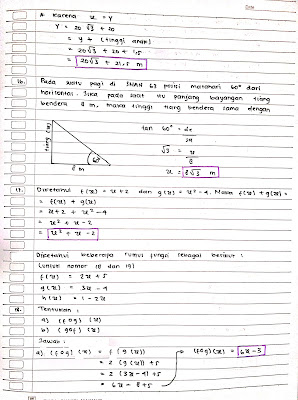 Date
* Karena x = y
y = 20√3 + 20
= y + (tinggi anak)
= 20√3 + 20 + 1,5
= 20√3 + 21,5 m
16. Pada suatu pagi di SMAN 63 posisi matahari 60° dari
horizontal. Jika pada saat itu panjang bayangan tiang
bendera 8 m, maka tinggi tiang bendera sama dengan
tiang (x)
60°
8 m
tan 60° = de
sa
√3 = x
8
x = 8√3 m
17. Diketahui f(x) = x+2 dan g(x) = x²-4. Maka f(x) + g(x) =
= f(x) + g(x)
= x+2 + x²-4
= x² + x - 2
= x² + x - 2
Diketahui beberapa rumus fungsi sebagai berikut :
(untuk nomor 18 dan 19)
f(x) = 2x + 5
g(x) = 3x - 4
h(x) = 1 - 2x
18. Tentukan :
a) (fog) (x)
b) (gof) (x)
Jawab :
a) (fog) (x) = f (g(x))
= 2 (g(x)) + 5
= 2 (3x-4) + 5
= 6x - 8 + 5
(fog)(x) = 6x-3